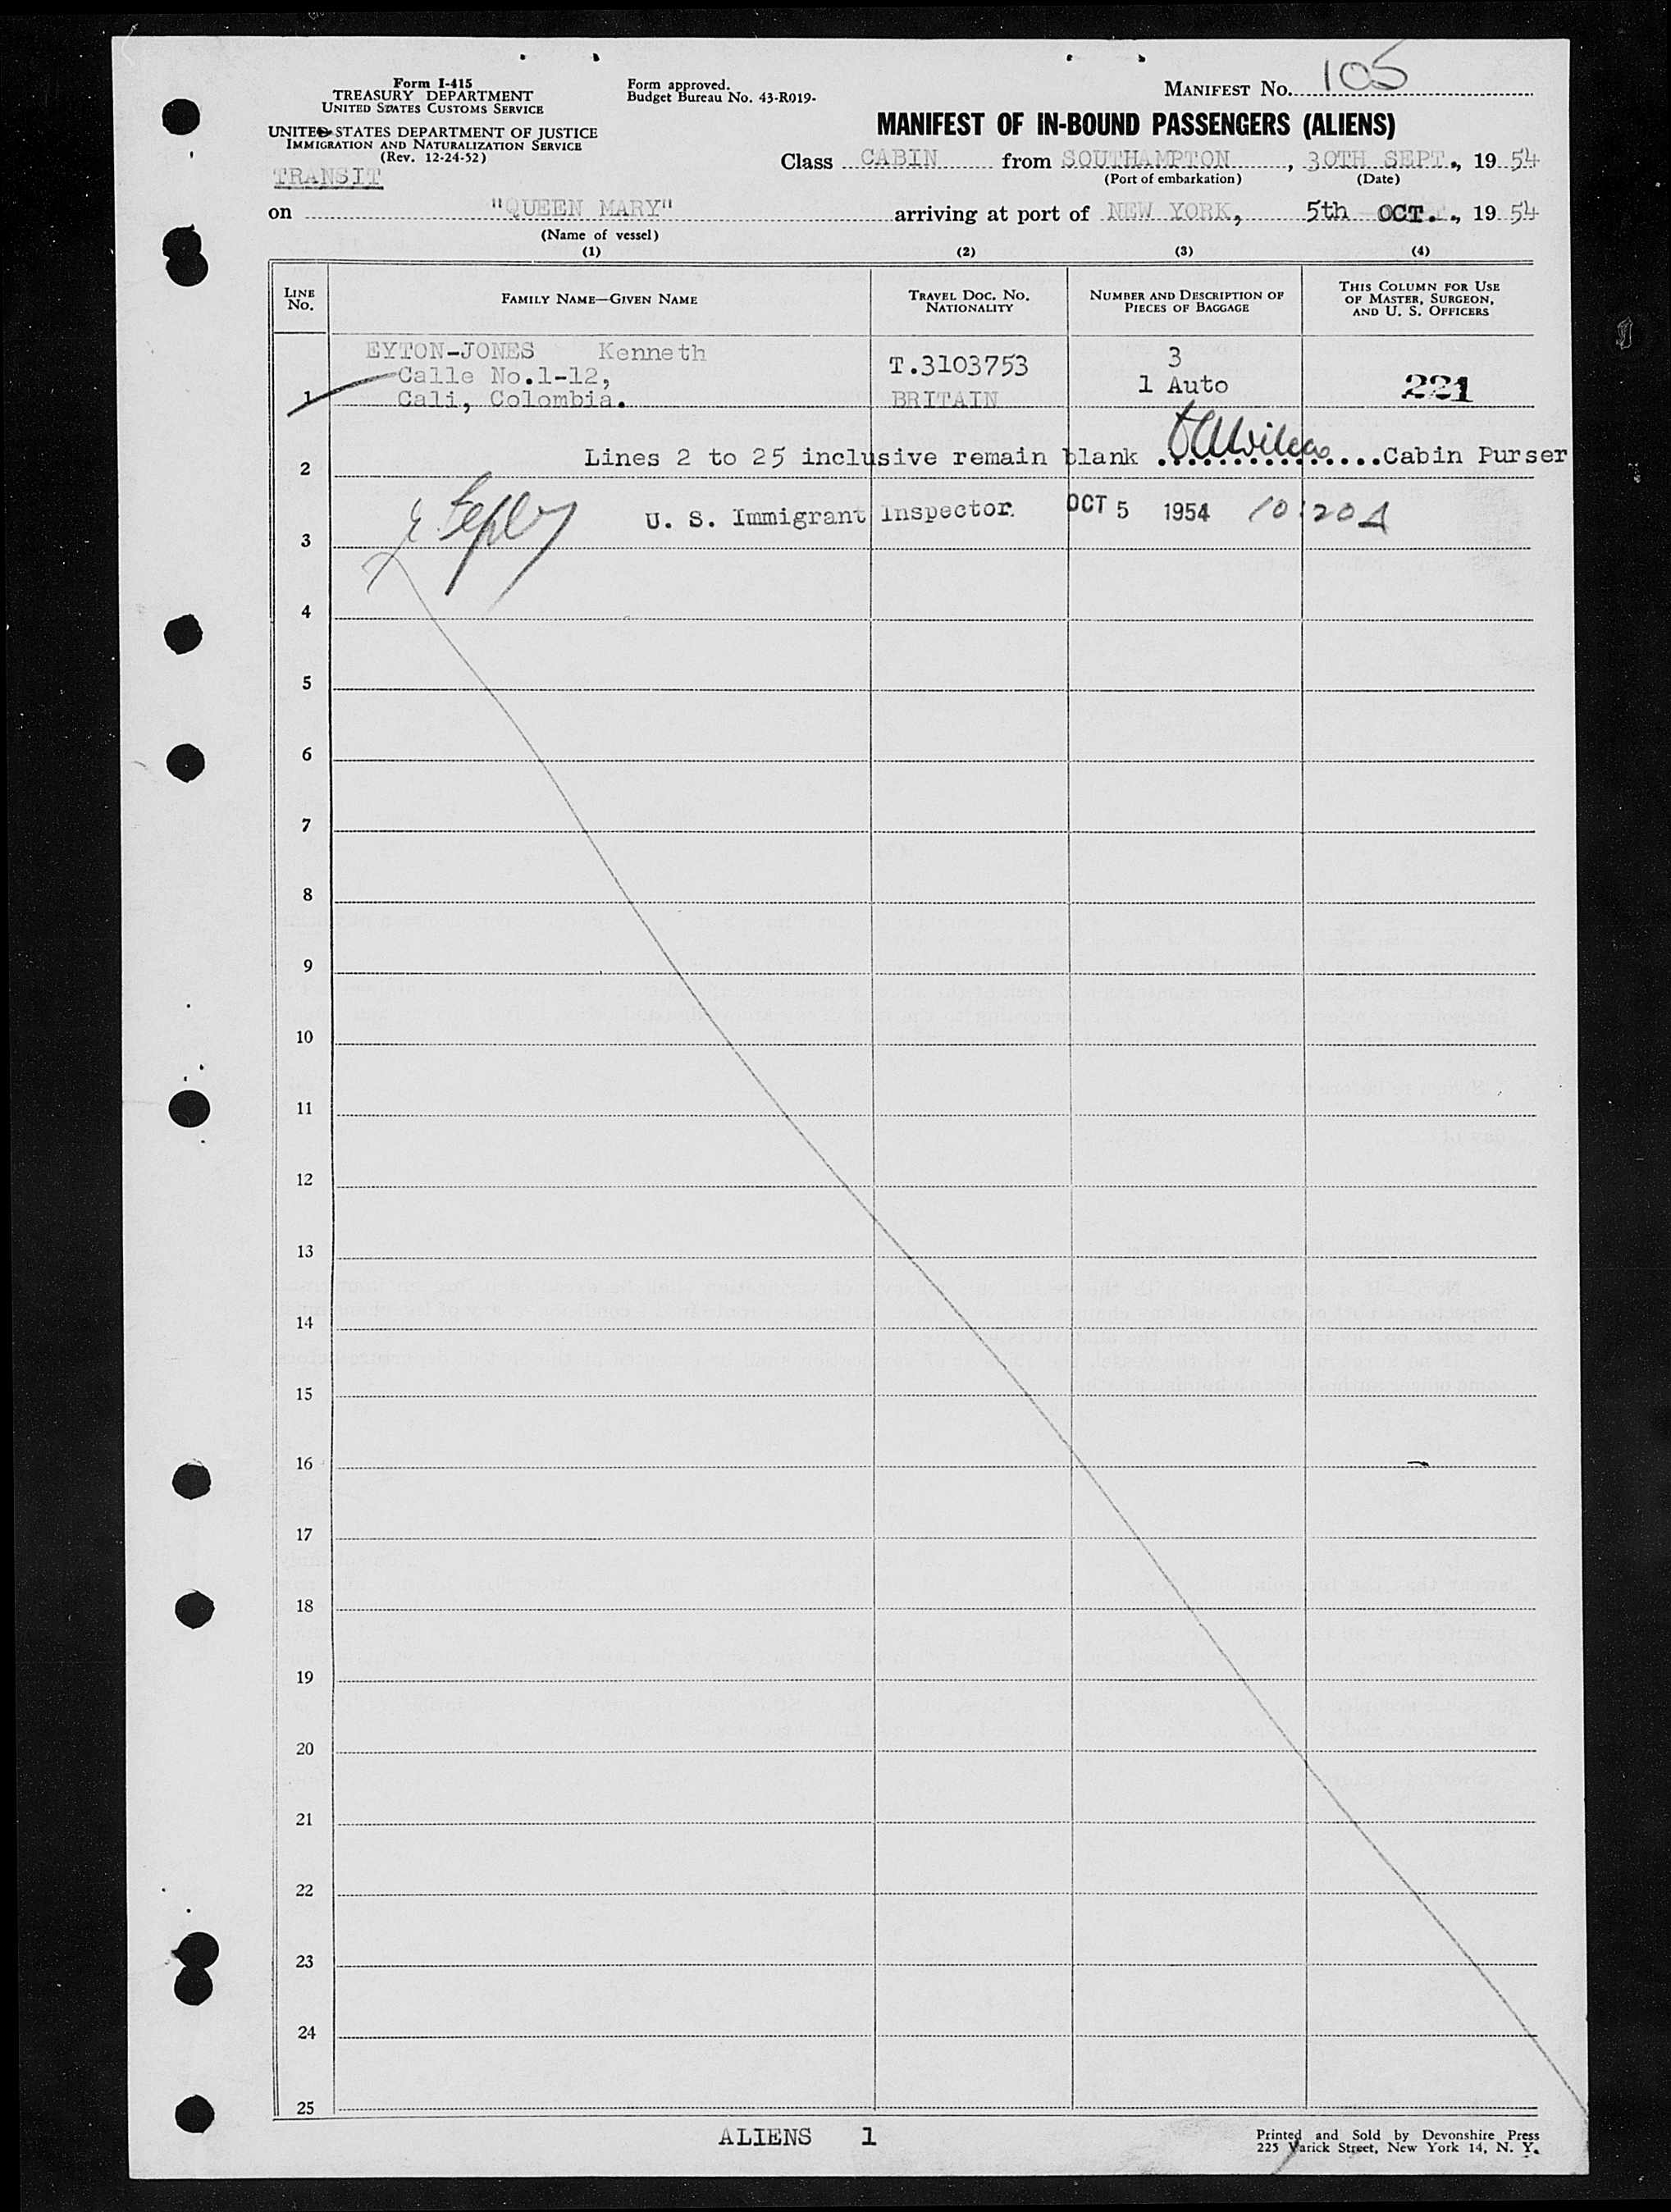 Form I-415
TREASURY DEPARTMENT
UNITED STATES CUSTOMS SERVICE
UNITED STATES DEPARTMENT OF JUSTICE
IMMIGRATION AND NATURALIZATION SERVICE
(Rev. 12-24-52)
TRANSIT
Form approved.
Budget Bureau No. 43-R019-
MANIFEST No. 105
MANIFEST OF IN-BOUND PASSENGERS (ALIENS)
Class CABIN from SOUTHAMPTON, 30TH SEPT., 19 54
(Port of embarkation) (Date)
on "QUEEN MARY" arriving at port of NEW YORK, 5th OCT., 19 54
(Name of vessel)
(1) (2) (3) (4)
LINE No. FAMILY NAME—GIVEN NAME TRAVEL DOC. No. NATIONALITY NUMBER AND DESCRIPTION OF PIECES OF BAGGAGE THIS COLUMN FOR USE OF MASTER, SURGEON, AND U. S. OFFICERS
EYTON-JONES Kenneth T.3103753 3
Calle No.1-12, 1 Auto 221
1 Cali, Colombia. BRITAIN
2 Lines 2 to 25 inclusive remain blank ................Cabin Purser
U. S. Immigrant Inspector. OCT 5 1954 10:20 A
3
4
5
6
7
8
9
10
11
12
13
14
15
16
17
18
19
20
21
22
23
24
25
ALIENS 1
Printed and Sold by Devonshire Press
225 Varick Street, New York 14, N. Y.